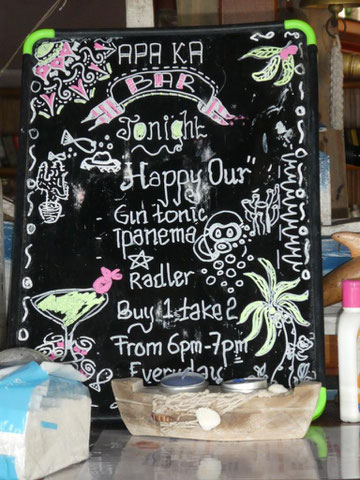 APA KA
BAR
Tonight
Happy Our"
Gin tonic
Ipanema
Radler
Buy 1 take 2
From 6pm-7pm
Everyday